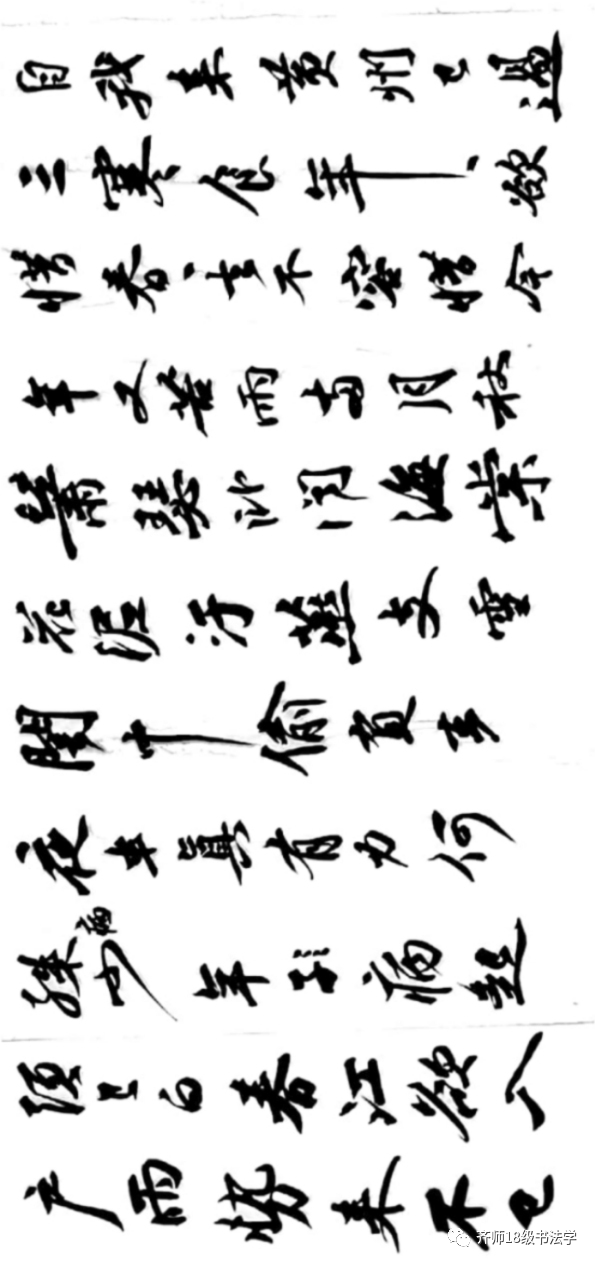 自我来黄州已過
三寒食年〻欲
惜春〻去不容惜今
年又苦雨两月秋
蕭瑟卧聞海棠
花泥汙燕支雪
闇中偷負去
夜半真有力何
殊病少年子病起
頭已白春江欲入
户雨勢来不已
齐师18级书法学